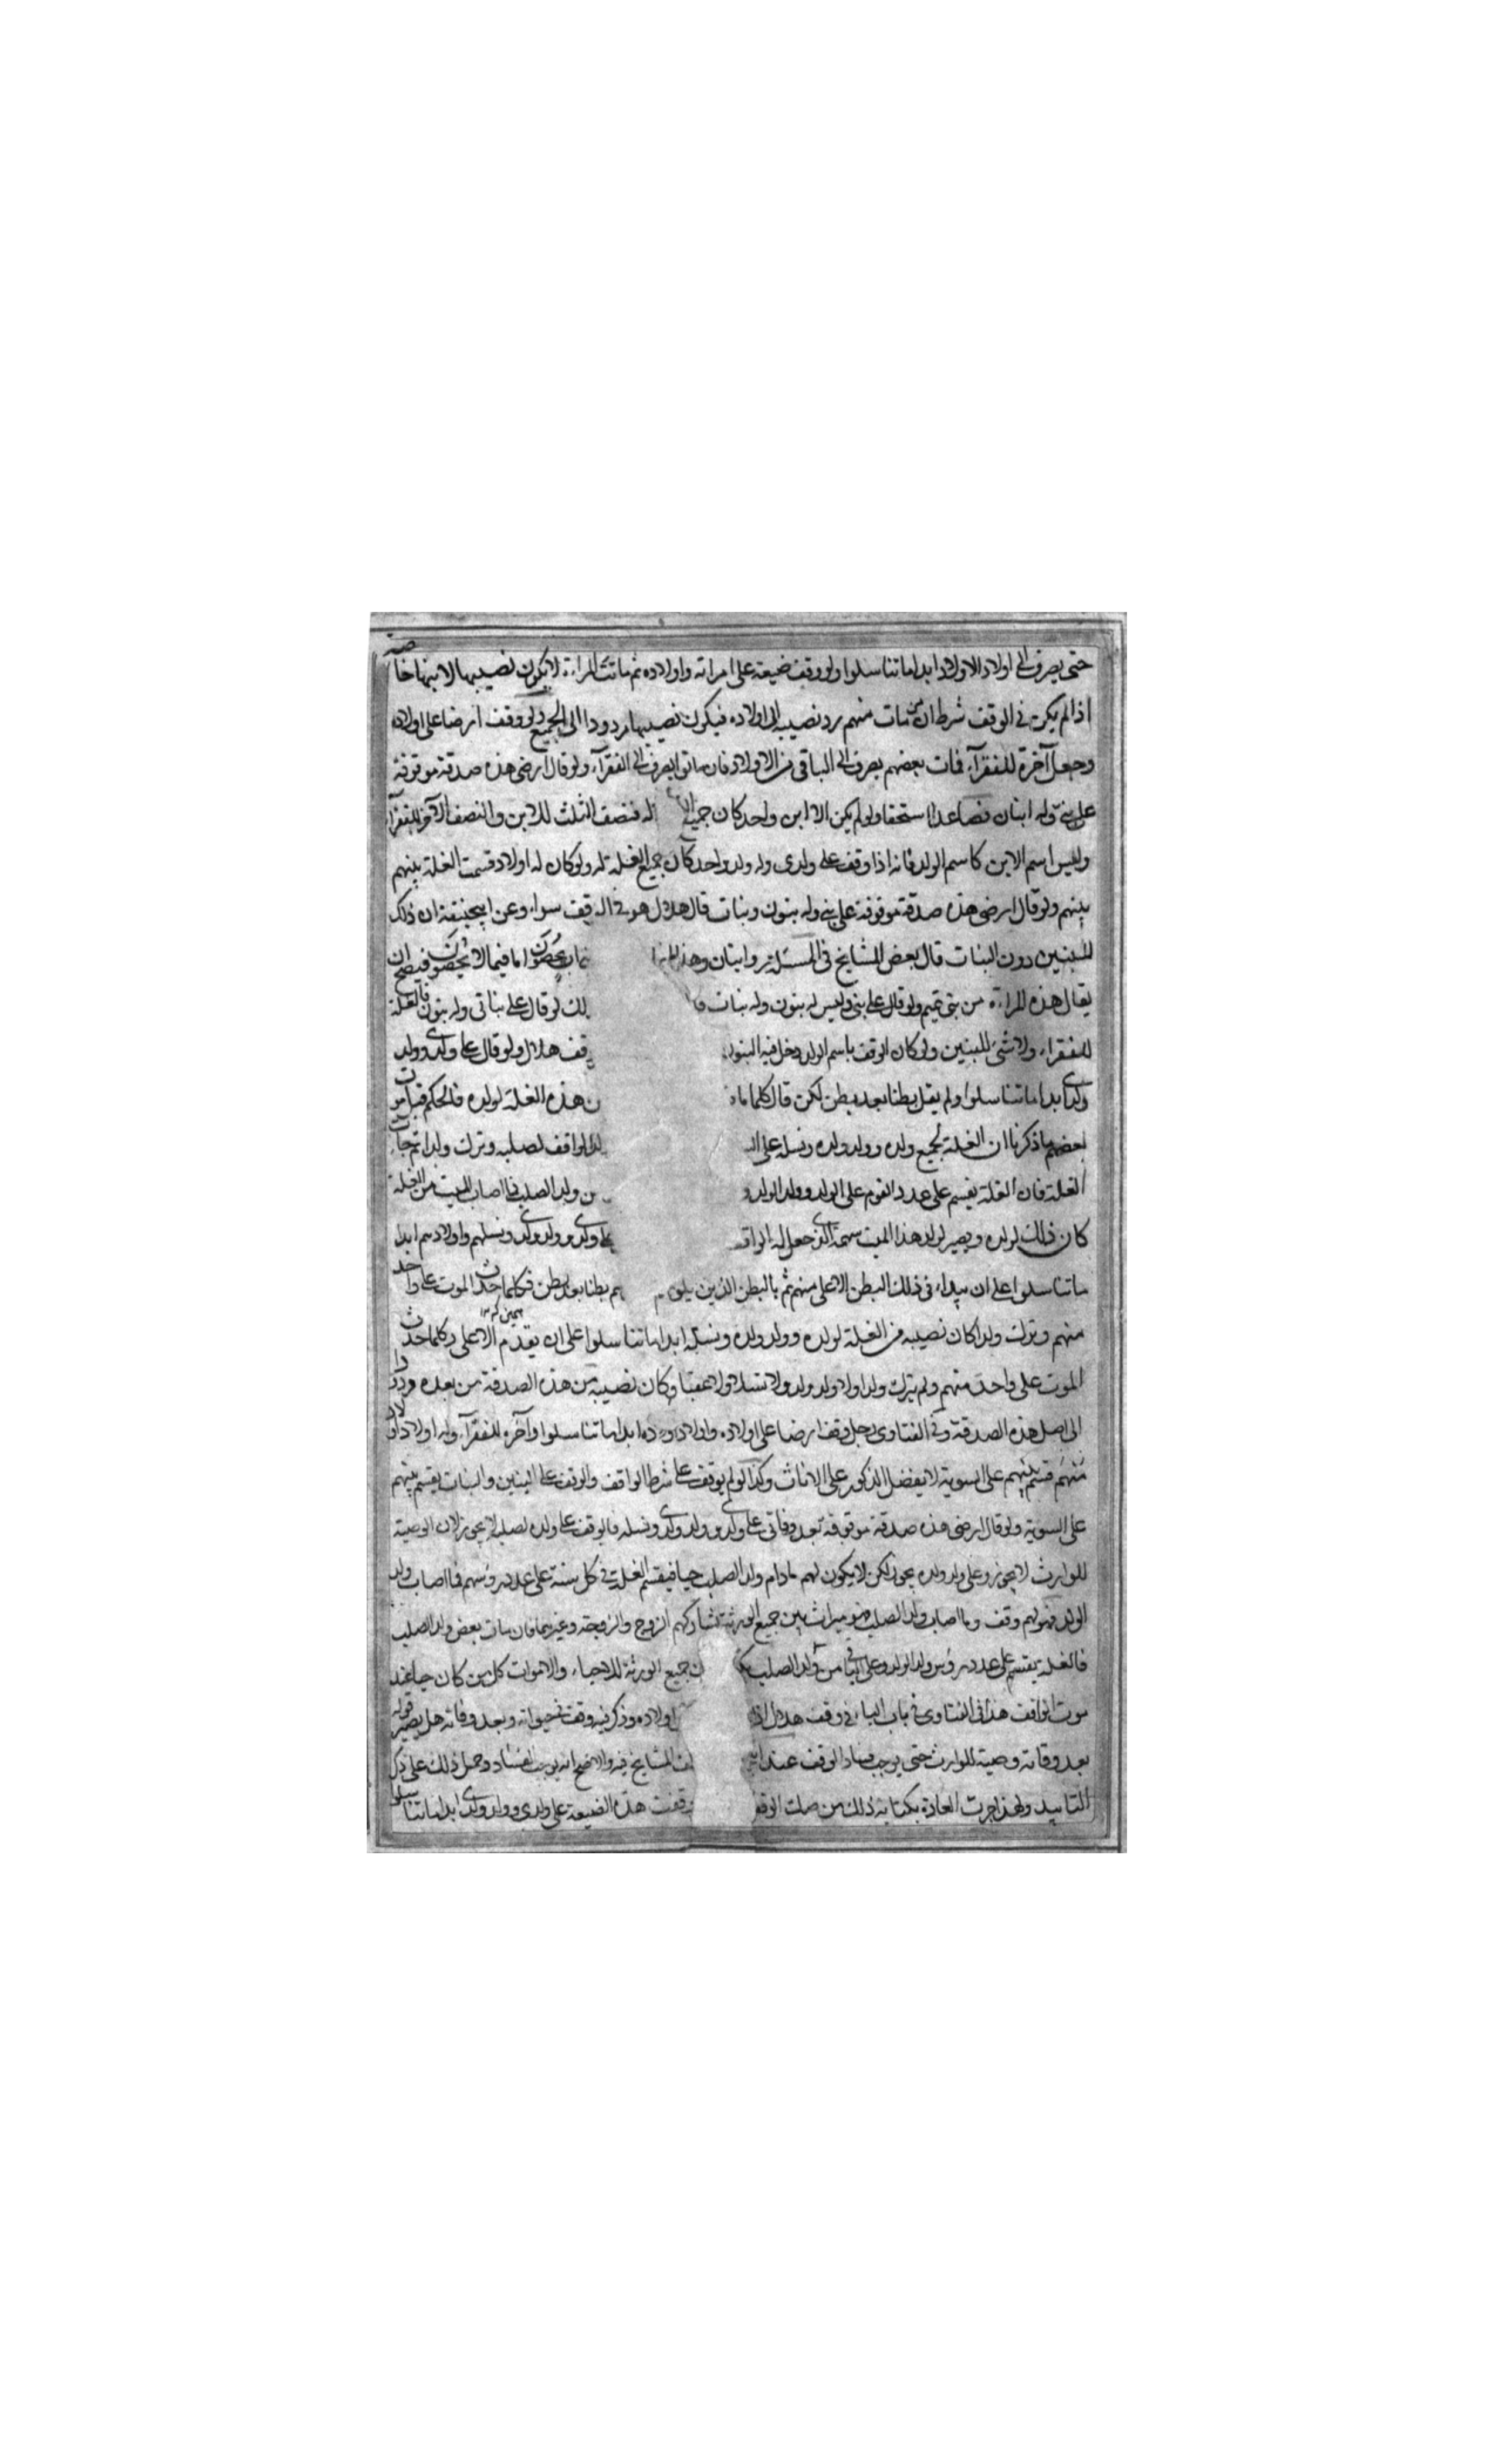 حتى يصرف الى اولاد الاولاد ابدا ما تناسلوا ولو وقف ضيعة على امراته واولاده ثم ماتت المراءة لا يكون نصيبها لابنها خاصة
اذا لم يكن في الوقف شرط ان من مات منهم رد نصيبه الى اولاده فيكون نصيبها مردودا الى الجميع ولو وقف ارضا على اولاده
وجعل آخره للفقرآء فمات بعضهم يصرف الى الباقي من الاولاد فان ماتوا يصرف الى الفقرآء ولو قال ارضى هذه صدقة موقوفة
على بني وله ابنان فصاعدا استحقا ولو لم يكن الا ابن واحد كان له فنصف الثلث للابن والنصف الآخر للفقرآء
وليس اسم الابن كاسم الولد فانه اذا وقف على ولدى وله ولد واحد كان جميع الغلة له ولو كان له اولاد قسمت الغلة بينهم
بينهم ولو قال ارضى هذه صدقة موقوفة على بني وله بنون وبنات قال هلال هو في الوقف سواء وعن ابيحنيفة ان ذلك
للبنين دون البنات قال بعض المشايخ في المسئلة روايتان وهذا يحصون اما فيما لا يحصون فيصح ان
يقال هذه المراءة من بني تميم ولو قال على بني وليس له بنون وله بنات لو قال على بناتى وله بنون فالغلة
للفقراء ولا شئ للبنين ولو كان الوقف باسم الولد دخل فيه البنون هلال ولو قال على ولدى وولد
ولدى ابدا ما تناسلوا ولم يقل بطنا بعد بطن لكن قال كلما هذه الغلة لولده فالحكم قبل موت
بعضهم ما ذكرنا ان الغلة لجميع ولده وولد ولده ونسله على الواقف لصلبه وترك ولدا ثم جاءت
الغلة فان الغلة يقسم على عدد القوم على الولد وولد الولد و من ولد الصلب فما اصاب الميت من الغلة
كان ذلك لولده ويصير لولد هذا الميت سهمه الذى جعل له على ولدى وولد ولدى ونسلهم واولادهم ابدا
ما تناسلوا على ان يبداء في ذلك البطن الاعلى منهم ثم بالبطن الذين يلونهم بطنا بعد بطن فكلما حدث الموت على واحد
منهم وترك ولدا كان نصيبه من الغلة لولده وولد ولده ونسله ابدا ما تناسلوا على ان يقدم الاعلى وكلما حدث
الموت على واحد منهم ولم يترك ولدا ولا ولد ولد ولا نسلا ولا عقبا وكان نصيبه من هذه الصدقة من بعده مردودا
الى اصل هذه الصدقة وفي الفتاوى رجل وقف ارضا على اولاده واولاد اولاده ابدا ما تناسلوا وآخره للفقرآء وله اولاد اولاد
منهم قسم بينهم على السوية لا يفضل الذكور على الاناث وكذا لو لم يوقف على شرط الواقف والوقف على البنين والبنات يقسم بينهم
على السوية ولو قال ارضى هذه صدقة موقوفة بعد وفاتى على ولدى وولد ولدى ونسله فالوقف على ولده لصلبه لا يجوز لان الوصية
للوارث لا يجوز وعلى ولد ولده يجوز لكن لا يكون لهم مادام ولد الصلب حيا فيقسم الغلة في كل سنة على عدد رؤسهم فما اصاب ولد
الولد فهو لهم وقف وما اصاب ولد الصلب فهو ميراث بين جميع الورثة تشاركهم الزوج والزوجة وغيرهما فان مات بعض ولد الصلب
فالغلة يقسم على عدد رؤس ولد الولد وعلى الباقى من ولد الصلب جميع الورثة للاحياء والاموات كل من كان حيا عند
موت الواقف هذا في الفتاوى في باب الياء في وقف هلال اذا اولاده وذكر فيه وقفت في حيواته وبعد وفاته هل يصير قوله
بعد وفاته وصية للوارث حتى يوجب فساد الوقف عند المشايخ فيه والاصح انه يوجب الفساد وحمل ذلك على ذكر
التابيد ولهذا جرت العادة بكتابة ذلك من صك الوقف وقفت هذه الضيعة على ولدى وولد ولدى ابدا ما تناسلوا